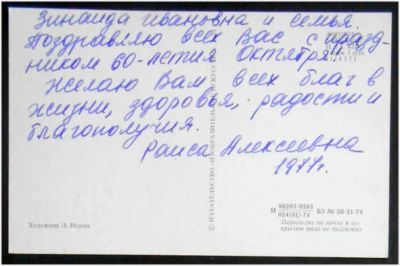 Зинаида Ивановна и семья.
Поздравляю всех Вас с празд-
ником 60-летия Октября!!
Желаю Вам всех благ в
жизни, здоровья, радости и
благополучия.
Раиса Алексеевна
1977г.
© ИЗДАТЕЛЬСТВО «ИЗОБРАЗИТЕЛЬНОЕ ИСКУССТВО»
Художник Э. Исаева
И 80205-0385 БЗ № 20-21-74
024(01)-74
Пересылке по почте в от-
крытом виде не подлежит